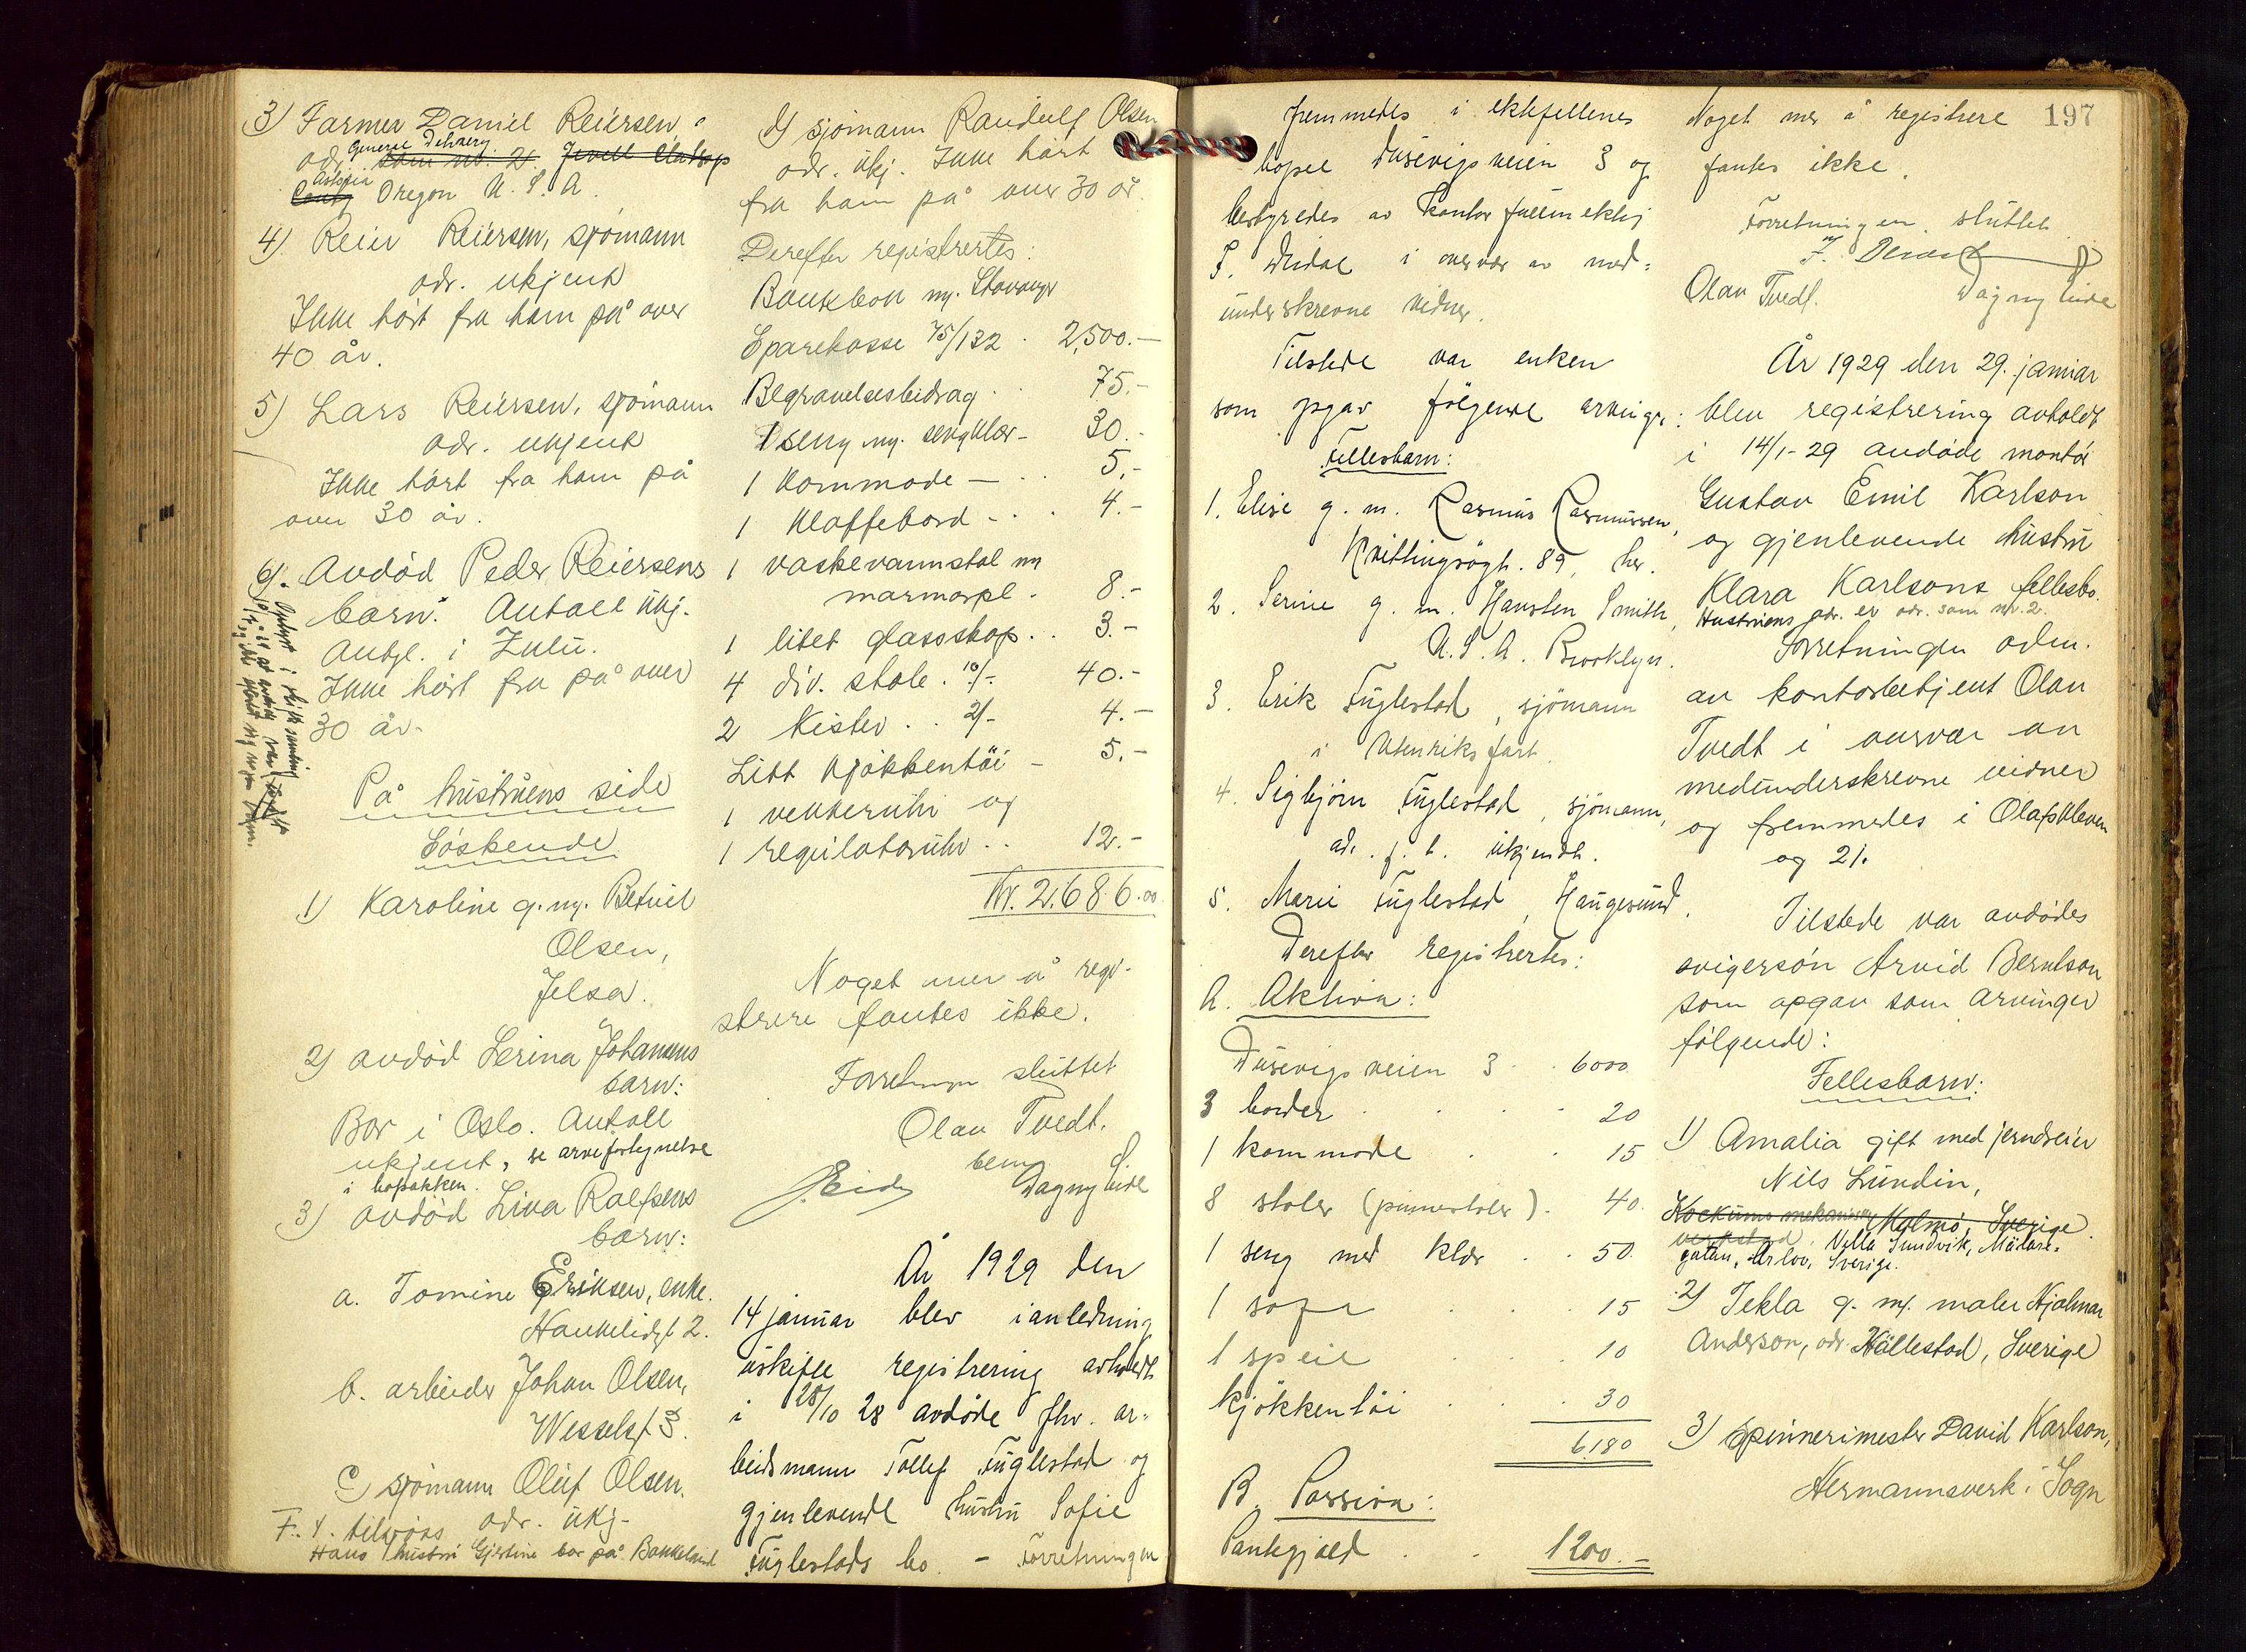 3) Farmer Daniel Reiersen,
adr. General Delivery
Astoria
Oregon U.S.A.
4) Reier Reiersen, sjömann
adr. ukjent
Ikke hört fra ham på over
40 år.
5) Lars Reiersen, sjömann
adr. ukjent
Ikke hört fra ham på
over 30 år.
6). Avdöd Peder Reiersens
barn. Antall ukj.
Antgl. i Zulu.
Ikke hört fra på over
30 år.
På hustruens side
Söskende
1) Karoline g. m. Betuel
Olsen,
Jelsa.
2) avdöd Serina Johansens
barn:
Bor i Oslo. Antall
ukjent, se arvefortegnelse
i bopakken.
3) avdöd Lina Rolfsens
barn:
a. Tomine Eriksen, enke.
Haukeligt 2.
b. arbeider Johan Olsen,
Wesselsgt 3.
c) sjömann Oluf Olsen.
F. t. tilsjös adr. ukj.
Hans hustru Gjertine bor på Bakkeland
d) sjömann Randulf Olsen
adr. ukj. Ikke hört
fra ham på over 30 år.
Derefter registrertes:
Bankbok m. Stavanger
Sparekasse 75/132 . 2,500.-
Begravelsesbidrag . . 75.-
1 seng m. sengklær - 30.-
1 kommode - . . 5.-
1 klaffebord - . . 4.-
1 vaskevannstol m
marmorpl. - 8.-
1 litet glassskap . . 3.-
4 div. stole . 10/- 40.-
2 kister . . 2/- 4.-
Litt kjökkentöi - 5.-
1 vekkeruhr og
1 regulatoruhr . . 12.-
Kr. 2.686.00
Noget mer å regi-
strere fantes ikke.
Forretningen sluttet
Olav Tvedt.
bem.
J. Eide Dagny Eide
År 1929 den
14 januar blev i anledning
uskifte registrering avholdt
i 28/10 28 avdöde fhv. ar-
beidsmann Tollef Fuglestad og
gjenlevende hustru Sofie
Fuglestads bo. - Forretningen
197
fremmedes i ektefellenes
bopel Dusevigsveien 3 og
bestyredes av kontorfullmektig
i overvær av med-
underskrevne vidner.
Tilstede var enken
som opgav fölgende arvinger:
Fellesbarn:
1. Elise g. m. Rasmus Rasmussen,
Kvittingsøgt. 89, her.
2. Serine g. m. Karsten Smith,
U.S.A. Brooklyn.
3. Erik Fuglestad, sjömann
i utenriksfart.
4. Sigbjörn Fuglestad, sjömann,
adr. f. t. ukjendt.
5. Marie Fuglestad, Haugesund.
Derefter registrertes:
A. Aktiva:
Dusevigsveien 3 . . 6000
3 border . . . 20
1 kommode . . 15
8 stoler (pinnestoler) . 40.
1 seng med klær . . 50
1 sofa . . . 15
1 speil . . . 10
kjökkentöi . . . 30
6180
B. Passiva:
Pantegjæld . . 1200.-
Noget mer å registrere
fantes ikke.
Forretningen sluttet
Olav Tvedt. Dagny Eide
År 1929 den 29. januar
blev registrering avholdt
i 14/1-29 avdöde montör
Gustav Emil Karlson
og gjenlevende hustru
Klara Karlsons fellesbo.
Hustruens adr. er adr. som nr. 2.
Forretningen adm.
av kontorbetjent Olav
Tvedt i overvær av
medunderskrevne vidner
og fremmedes i Olafskleven
og 21.
Tilstede var avdödes
svigersön Arvid Berntson
som opgav som arvinger
fölgende:
Fellesbarn:
1) Amalia gift med jerndreier
Nils Lundin,
Kockums mekaniske Malmö, Sverige.
verkstad. Villa Sundvik, Mälare-
gatan, Arlov, Sverige.
2) Tekla g. m. maler Hjalmar
Anderson, adr. Hällestad, Sverige
3) Spinnerimester David Karlson,
Hermannsverk i Sogn